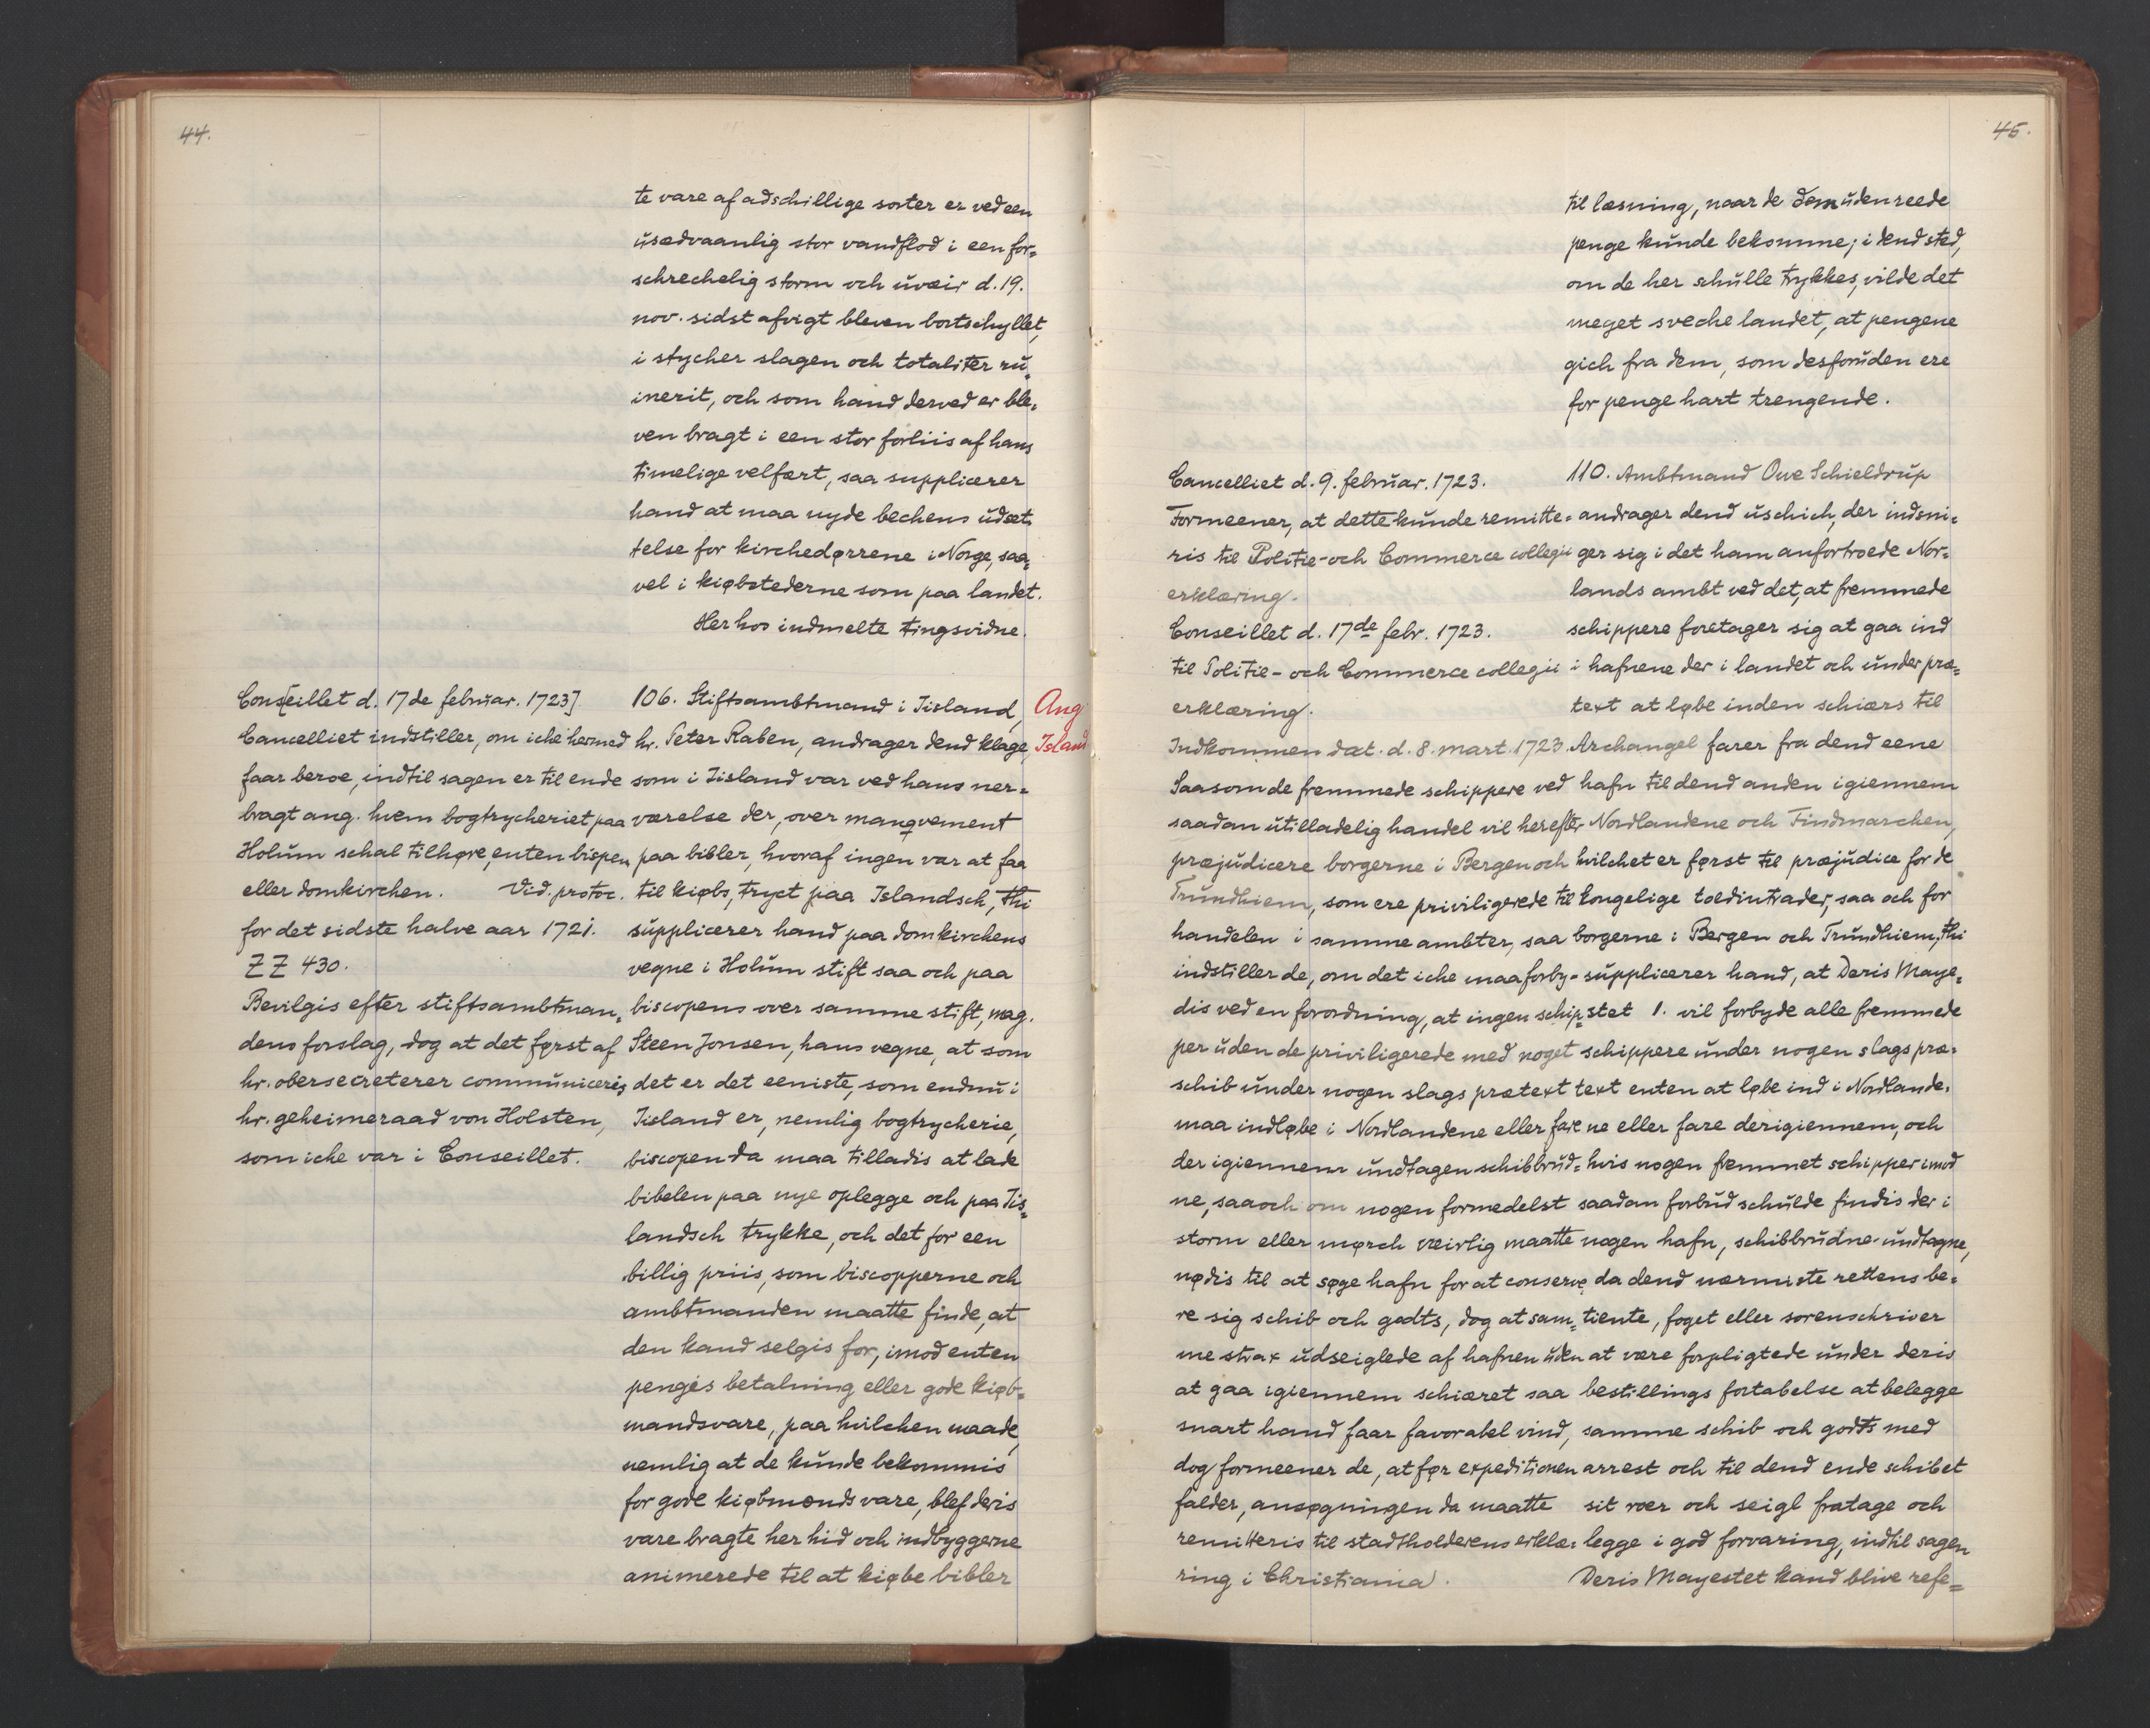 44.
te vare af adschillige sorter er ved een
usædvaanlig stor vandflod i een for=
schrechelig storm och uveir d. 19.
nov. sidst afvigt bleven bortschyllet,
i stycher slagen och totaliter ru=
inerit, och som hand derved er ble=
ven bragt i een stor forliis af hans
timelige velfært, saa supplicerer
hand at maa nyde bechens udset=
telse for kirchedørrene i Norge, saa=
vel i kiøbstederne som paa landet.
Her hos indmelte tingsvidne.
Cons[eillet d. 17de februar. 1723]
Cancelliet indstiller, om iche hermed
faar beroe, indtil sagen er til ende
bragt ang. hvem bogtrycheriet paa
Holum schal tilhøre, enten bispen
eller domkirchen. Vid. protoc.
for det sidste halve aar 1721.
ZZ 430.
Bevilgis efter stiftsambtman=
dens forslag, dog at det først af
hr. obersecreterer communiceris
hr. geheimeraad von Holsten,
som iche var i Conseillet.
106. Stiftsambtmand i Iisland,
hr. Peter Raben, andrager dend klage,
som i Iisland var ved hans ner=
værelse der, over manqvement
paa bibler, hvoraf ingen var at faa
til kiøbs, tryct paa Islandsch, thi
supplicerer hand paa domkirchens
vegne i Holum stift saa och paa
biscopens over samme stift, mag.
Steen Jonsen, hans vegne, at som
det er det eeniste, som endnu i
Iisland er, nemlig bogtrycherie,
biscopen da maa tilladis at lade
bibelen paa nye oplegge och paa Iis=
landsch trykke, och det for een
billig priis, som biscopperne och
ambtmanden maatte finde, at
den kand selgis for, imod enten
pengis betalning eller gode kiøb=
mandsvare, paa hvilchen maade,
nemlig at de kunde bekommis
for gode kiøbmends vare, blef deris
vare bragte her hid och indbyggerne
animerede til at kiøbe bibler
Ang
Island
45.
til læsning, naar de dem uden reede
penge kunde bekomme; i dend sted,
om de her schulle trykkes, vilde det
meget sveche landet, at pengene
gich fra dem, som desforuden ere
for penge hart trengende.
Cancelliet d. 9. februar. 1723.
Formeener, at dette kunde remitte=
ris til Politie- och Commerce collegii
erklæring.
Conseillet d. 17de febr. 1723.
til Politie- och Commerce collegii
erklæring.
Indkommen dat. d. 8. mart. 1723.
Saasom de fremmede schippere ved
saadan utilladelig handel vil herefter
præjudicere borgerne i Bergen och
Trundhiem, som ere priviligerede til
handelen i samme ambter, saa
indstiller de, om det iche maa forby=
dis ved en forordning, at ingen schip=
per uden de priviligerede med noget
schib under nogen slags prætext
maa indløbe i Nordlandene eller fare
der igiennem undtagen schibbrud=
ne, saa och om nogen formedelst
storm eller mørch væirlig maatte
nødis til at søge hafn for at conserve=
re sig schib och godts, dog at sam=
me strax udseiglede af hafnen uden
at gaa igiennem schiæret saa
snart hand faar favorabel vind,
dog formeener de, at før expeditionen
falder, ansøgningen da maatte
remitteris til stadtholderens erklæ=
ring i Christiania.
110. Ambtmand Ove Schieldrup
andrager dend uschich, der indsni=
ger sig i det ham anfortroede Nor=
lands ambt ved det, at fremmede
schippere foretager sig at gaa ind
i hafnene der i landet och under præ=
text at løbe inden schiærs til
Archangel farer fra dend eene
hafn til dend anden igiennem
Nordlandene och Findmarchen,
hvilchet er først til præjudice for de
kongelige toldintrader, saa och for
borgerne i Bergen och Trundhiem, thi
supplicerer hand, at Deris Maye=
stet 1. vil forbyde alle fremmede
schippere under nogen slags præ=
text enten at løbe ind i Nordlande=
ne eller fare derigiennem, och
hvis nogen fremmet schipper imod
saadan forbud schulde findis der i
nogen hafn, schibbrudne undtagne,
da dend nærmiste rettens be=
tiente, foget eller sorenschriver
at være forpligtede under deris
bestillings fortabelse at belegge
samme schib och godts med
arrest och til dend ende schibet
sit roer och seigl fratage och
legge i god forvaring, indtil sagen
Deris Mayestet kand blive refe=